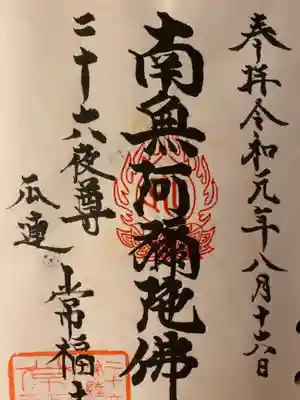 奉拝令和元年八月十六日
南無阿彌陀佛
二十六夜尊
瓜連 常福寺